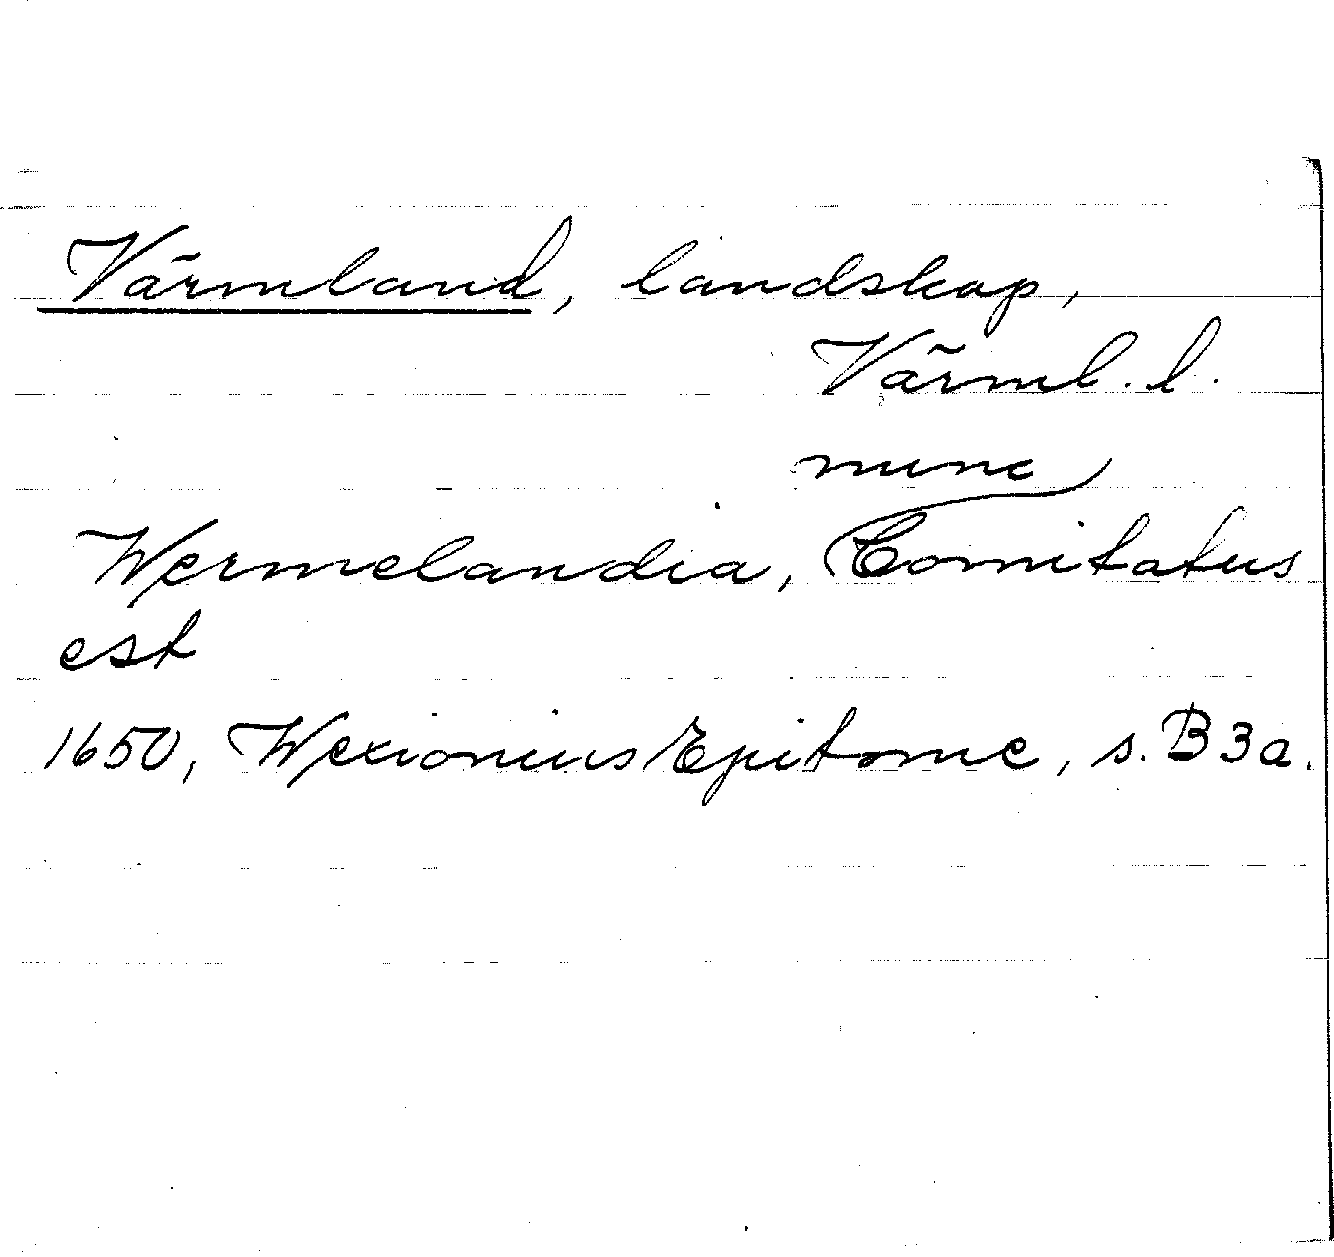 Värmland, landskap,
Värml. l.
nunc
Wermelandia, Comitatus
est
1650, Wexionius Epitome, s. B3a.